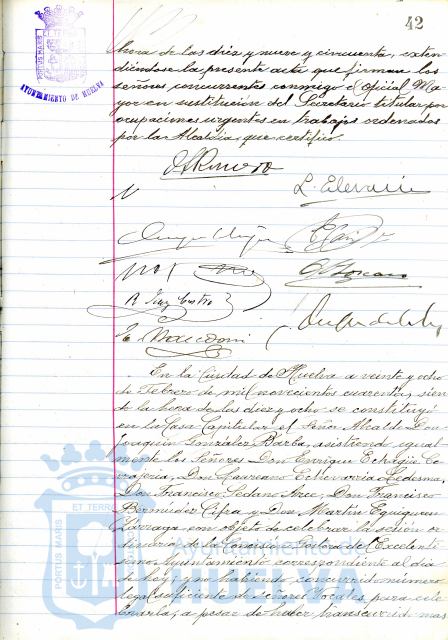 42
PORTUS MARIS
AYUNTAMIENTO DE HUELVA
hora de las diez y nueve y cincuenta, exten
diéndose la presente acta que firman los
señores concurrentes conmigo el Oficial Ma
yor en sustitución del Secretario titular por
ocupaciones urgentes en trabajos ordenados
por la Alcaldía, que certifico.
En la Ciudad de Huelva a veinte y ocho
de Febrero de mil novecientos cuarenta, sien
do la hora de las diez y ocho se constituyó
en la Casa Capitular el Señor Alcalde Don
Joaquín González Barba, asistiendo igual
mente los Señores Don Enrique
Don Laureano Echevarría Ledesma,
Don Francisco Sedano Arce, Don Francisco
Bermúdez Cifra y Don Martín
con objeto de celebrar la sesión or
dinaria de la Comisión Gestora del Excelentí
simo Ayuntamiento correspondiente al día
de hoy; y no habiendo concurrido número
legal suficiente de señores Vocales para cele
brarla, a pesar de haber transcurrido mas
PORTUS MARIS ET TERRE
Ayuntamiento de
HUELVA